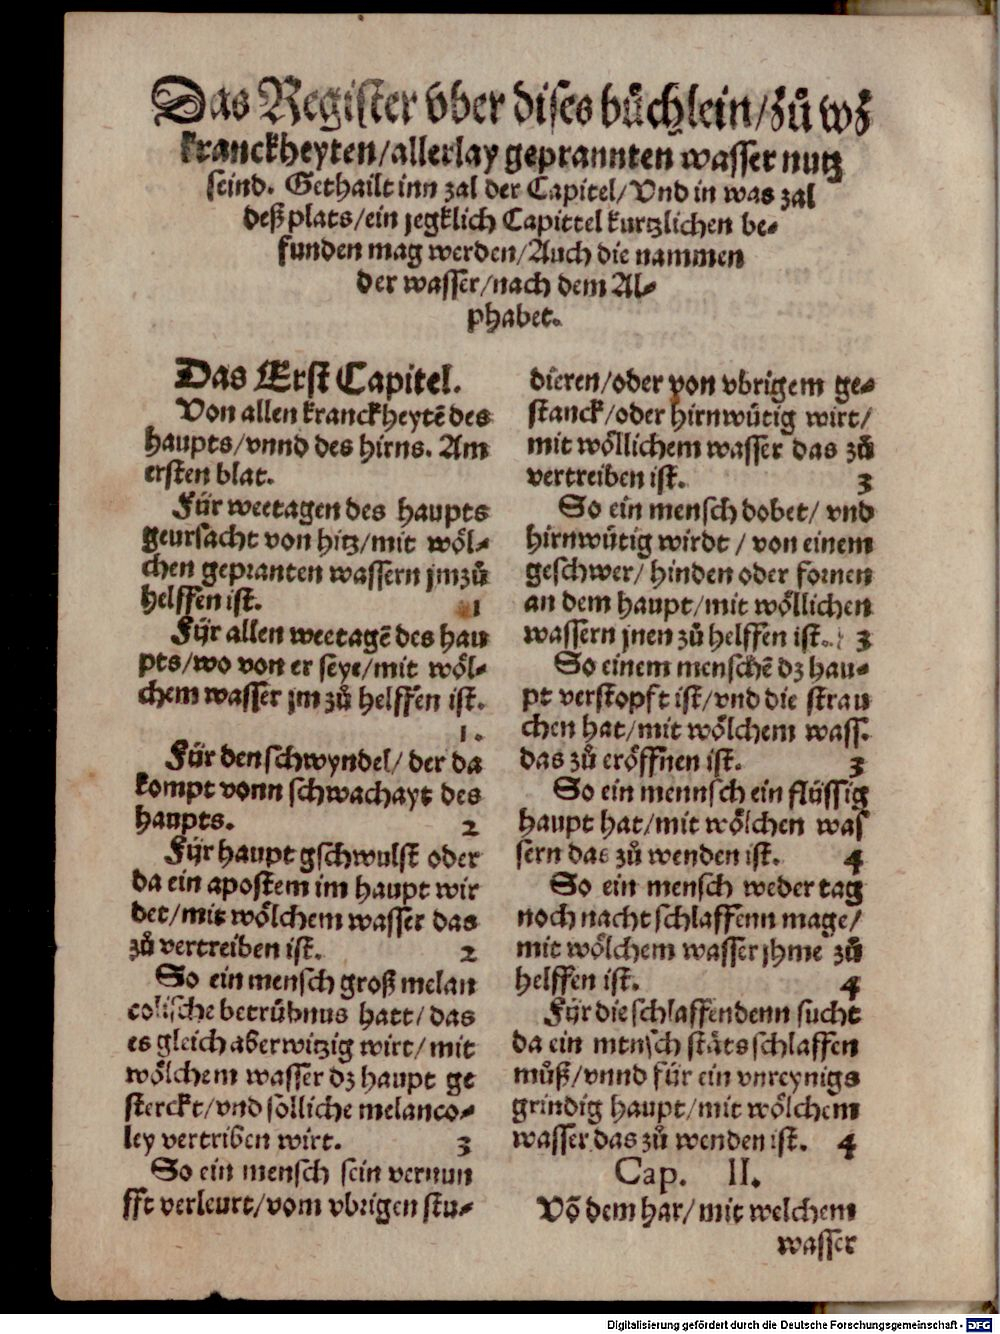 Das Register vber dises bůchlein/zů wz
kranckheyten/allerlay geprannten wasser nutz
seind. Gethailt inn zal der Capitel/Vnd in was zal
deß plats/ein jegklich Capittel kurtzlichen be-
funden mag werden/Auch die nammen
der wasser/nach dem Al-
phabet.
Das Erst Capitel.
Von allen kranckheytē des
haupts/vnnd des hirns. Am
ersten blat.
Für weetagen des haupts
geursacht von hitz/mit wöl-
chen gepranten wassern jmzů
helffen ist. 1
Für allen weetagē des hau
pts/wo von er seye/mit wöl-
chem wasser jm zů helffen ist.
1.
Für den schwyndel/ der da
kompt vonn schwachayt des
haupts. 2
Für haupt gschwulst oder
da ein apostem im haupt wir
det/mit wölchem wasser das
zů vertreiben ist. 2
So ein mensch groß melan
colische betrübnus hatt/das
es gleich aberwitzig wirt/mit
wölchem wasser dz haupt ge
sterckt/vnd solliche melanco-
ley vertriben wirt. 3
So ein mensch sein vernun
fft verleurt/vom vbrigen stu-
dieren/oder von vbrigem ge-
stanck/oder hirnwütig wirt/
mit wöllichem wasser das zů
vertreiben ist. 3
So ein mensch dobet/ vnd
hirnwütig wirdt / von einem
geschwer/ hinden oder fornen
an dem haupt/mit wöllichen
wassern jnen zů helffen ist. 3
So einem menschē dz hau-
pt verstopft ist/vnd die strau
chen hat/mit wölchem wass.
das zů eröffnen ist. 3
So ein mennsch ein flüssig
haupt hat/mit wölchen was
sern das zů wenden ist. 4
So ein mensch weder tag
noch nacht schlaffenn mage/
mit wölchem wasser jhme zů
helffen ist. 4
Für die schlaffendenn sucht
da ein mensch stäts schlaffen
můß/vnnd für ein vnreynigs
grindig haupt/mit wölchem
wasser das zů wenden ist. 4
Cap. II.
Vō dem har/ mit welchem
wasser
Digitalisierung gefördert durch die Deutsche Forschungsgemeinschaft - DFG